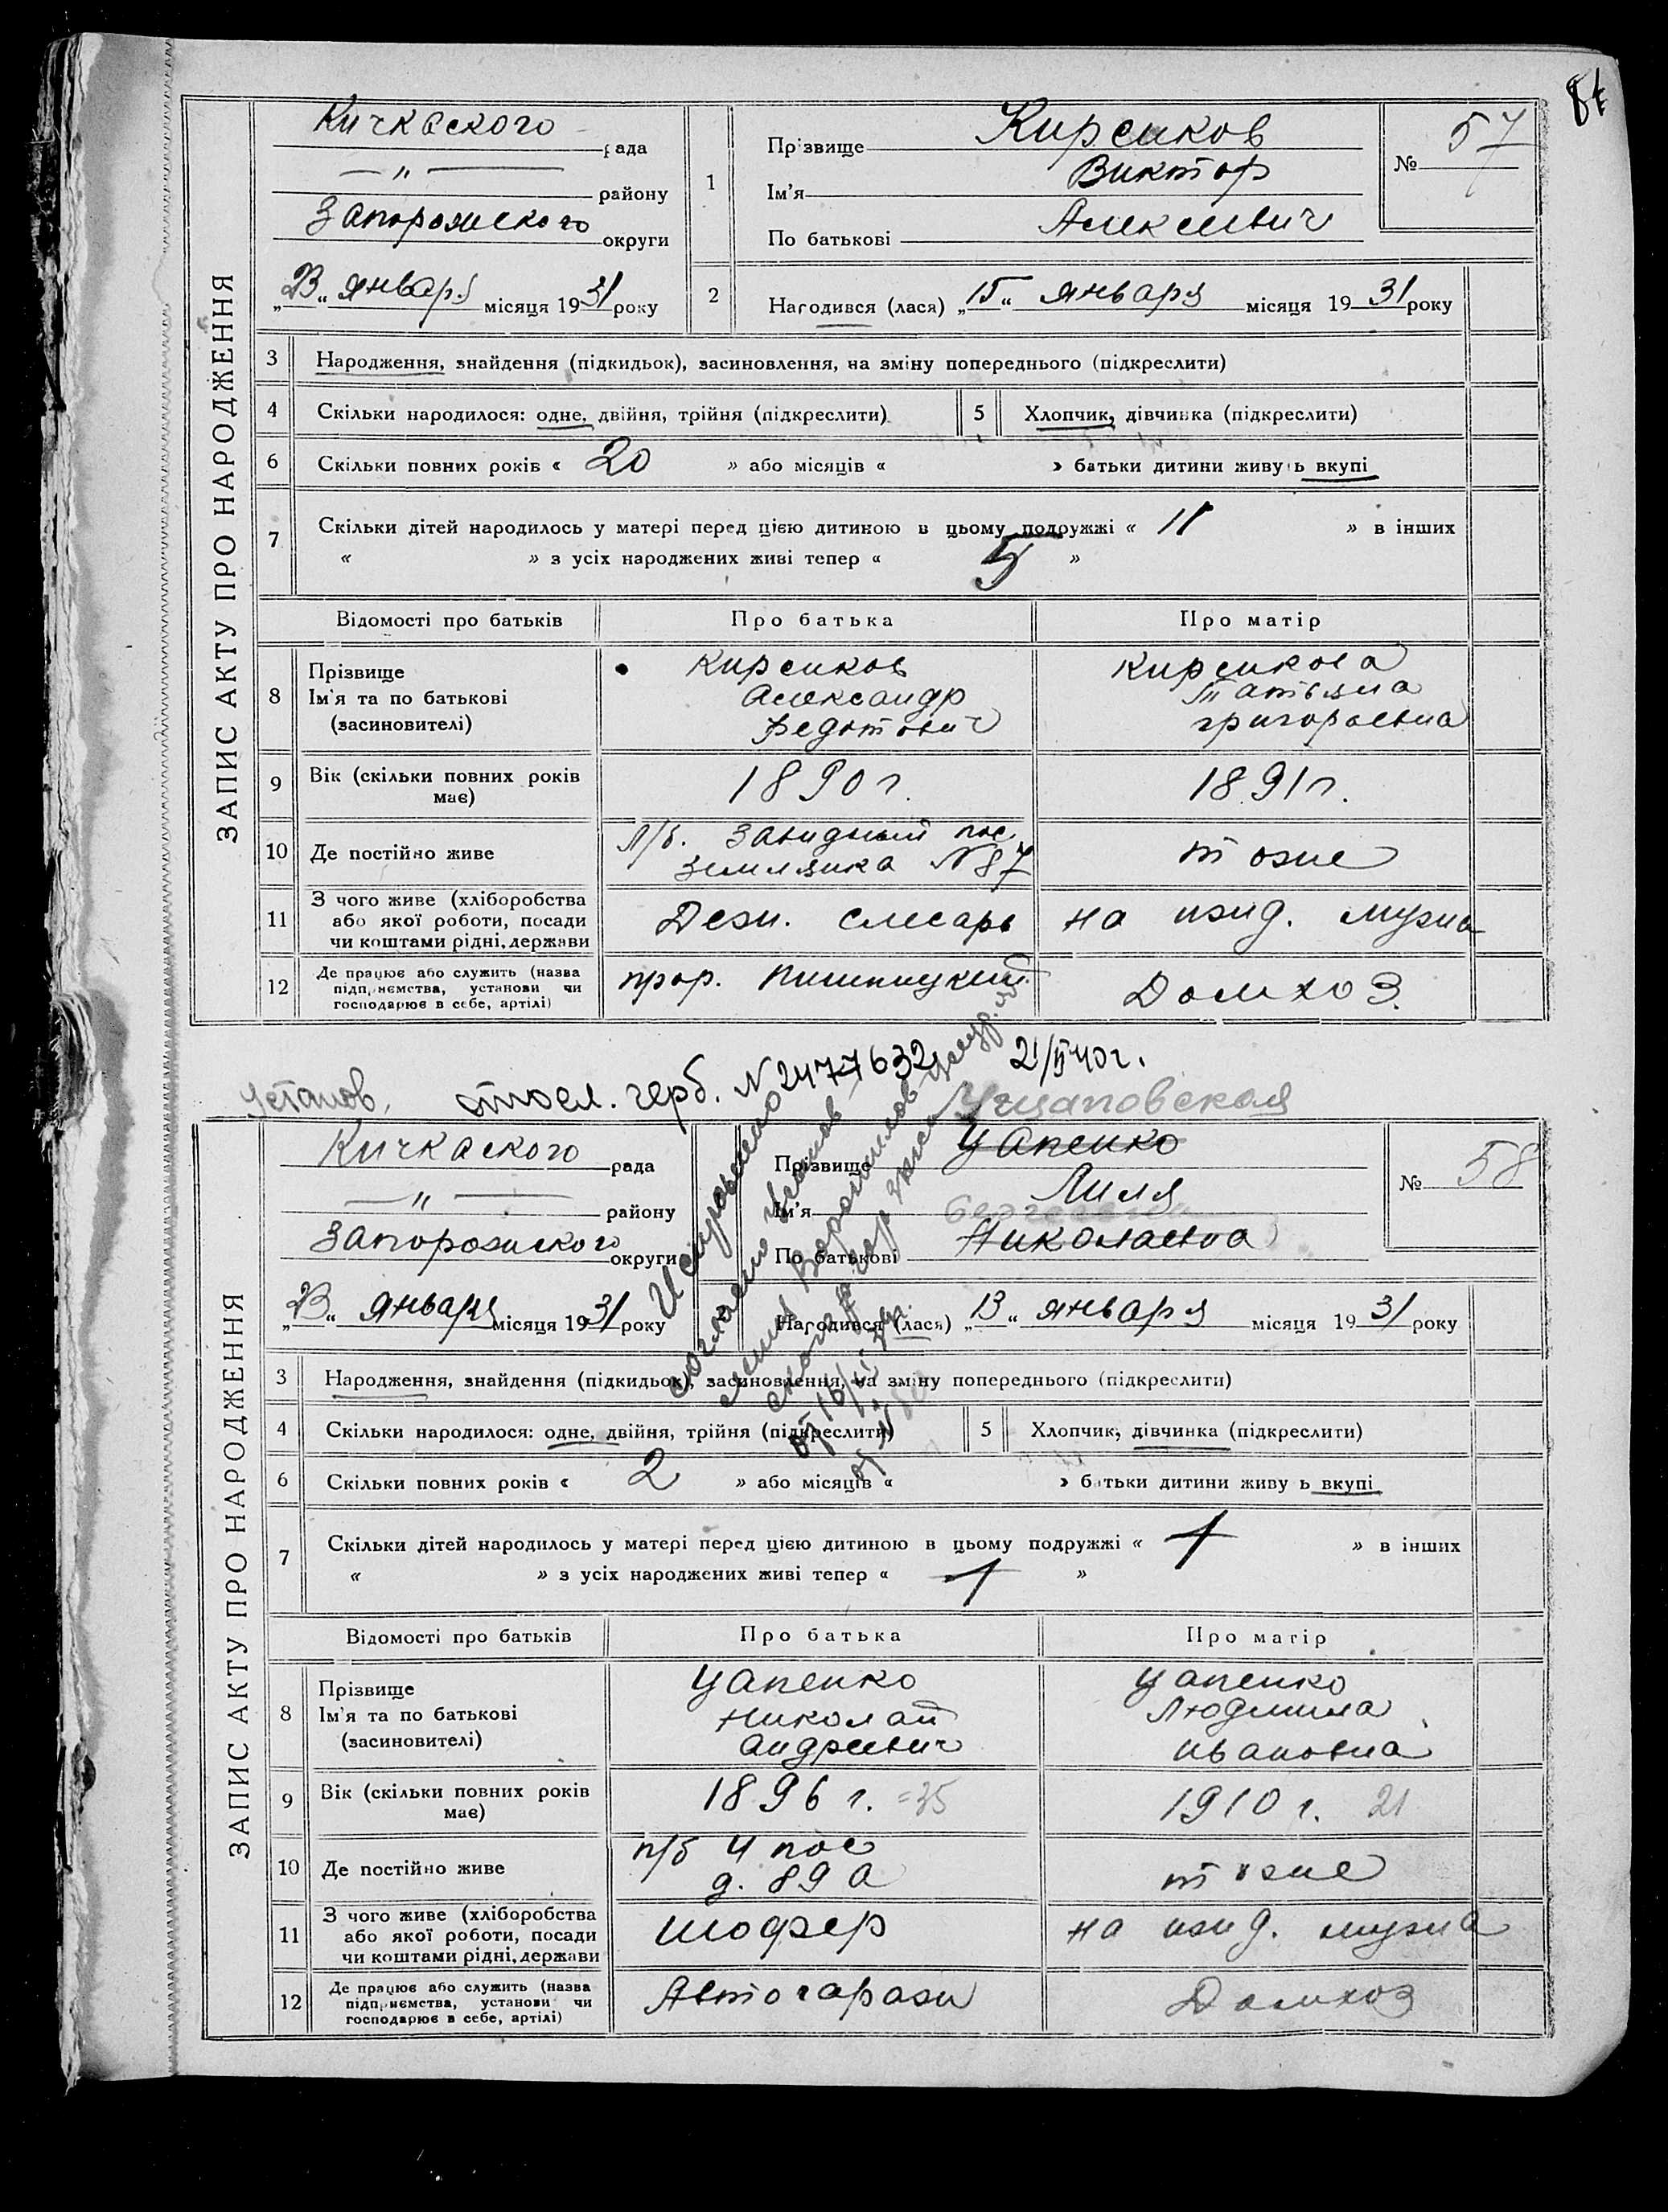 84
ЗАПИС АКТУ ПРО НАРОДЖЕННЯ
Кичкаского рада
— " — району
Запорожского округи
„23“ января місяця 1931 року
1
Прізвище Кирсиков
Ім'я Виктор
По батькові Алексеевич
№ 57
2 Народився (лася) „15“ января місяця 1931 року
3 Народження, знайдення (підкидьок), засиновлення, на зміну попереднього (підкреслити)
4 Скільки народилося: одне, двійня, трійня (підкреслити) 5 Хлопчик, дівчинка (підкреслити)
6 Скільки повних років « 20 » або місяців « » батьки дитини живуть вкупі
7 Скільки дітей народилось у матері перед цією дитиною в цьому подружжі « 11 » в інших
« » з усіх народжених живі тепер « 5 »
Відомості про батьків Про батька Про матір
8 Прізвище Ім'я та по батькові (засиновителі)
Кирсиков Кирсикова
Александр Татьяна
Федотович григорьевна
9 Вік (скільки повних років має) 1890 г. 1891 г.
10 Де постійно живе
п/б. пос
землянка № 87 тоже
11 З чого живе (хліборобства або якої роботи, посади чи коштами рідні, держави
слесарь на ижд. мужа
12 Де працює або служить (назва підприємства, установи чи господарює в себе, артілі)
Домхоз.
герб. № 2477632 21/II 40 г.
ЗАПИС АКТУ ПРО НАРОДЖЕННЯ
Кичкаского рада
— " — району
Запорожского округи
„23“ января місяця 1931 року
Прізвище Цапенко
Ім'я Лиля
По батькові Николаевна
№ 58
Исправлено
согласно
Народився (лася) „13“ января місяця 1931 року
3 Народження, знайдення (підкидьок), засиновлення, на зміну попереднього (підкреслити)
4 Скільки народилося: одне, двійня, трійня (підкреслити) 5 Хлопчик, дівчинка (підкреслити)
6 Скільки повних років « 2 » або місяців « » батьки дитини живуть вкупі
7 Скільки дітей народилось у матері перед цією дитиною в цьому подружжі « 1 » в інших
« » з усіх народжених живі тепер « 1 »
Відомості про батьків Про батька Про матір
8 Прізвище Ім'я та по батькові (засиновителі)
Цапенко Цапенко
Николай Людмила
Андреевич Ивановна
9 Вік (скільки повних років має) 1896 г. =35 1910 г. 21
10 Де постійно живе
п/б 4 пос
д. 89 а тоже
11 З чого живе (хліборобства або якої роботи, посади чи коштами рідні, держави
шофер на ижд. мужа
12 Де працює або служить (назва підприємства, установи чи господарює в себе, артілі)
Автогараж Домхоз